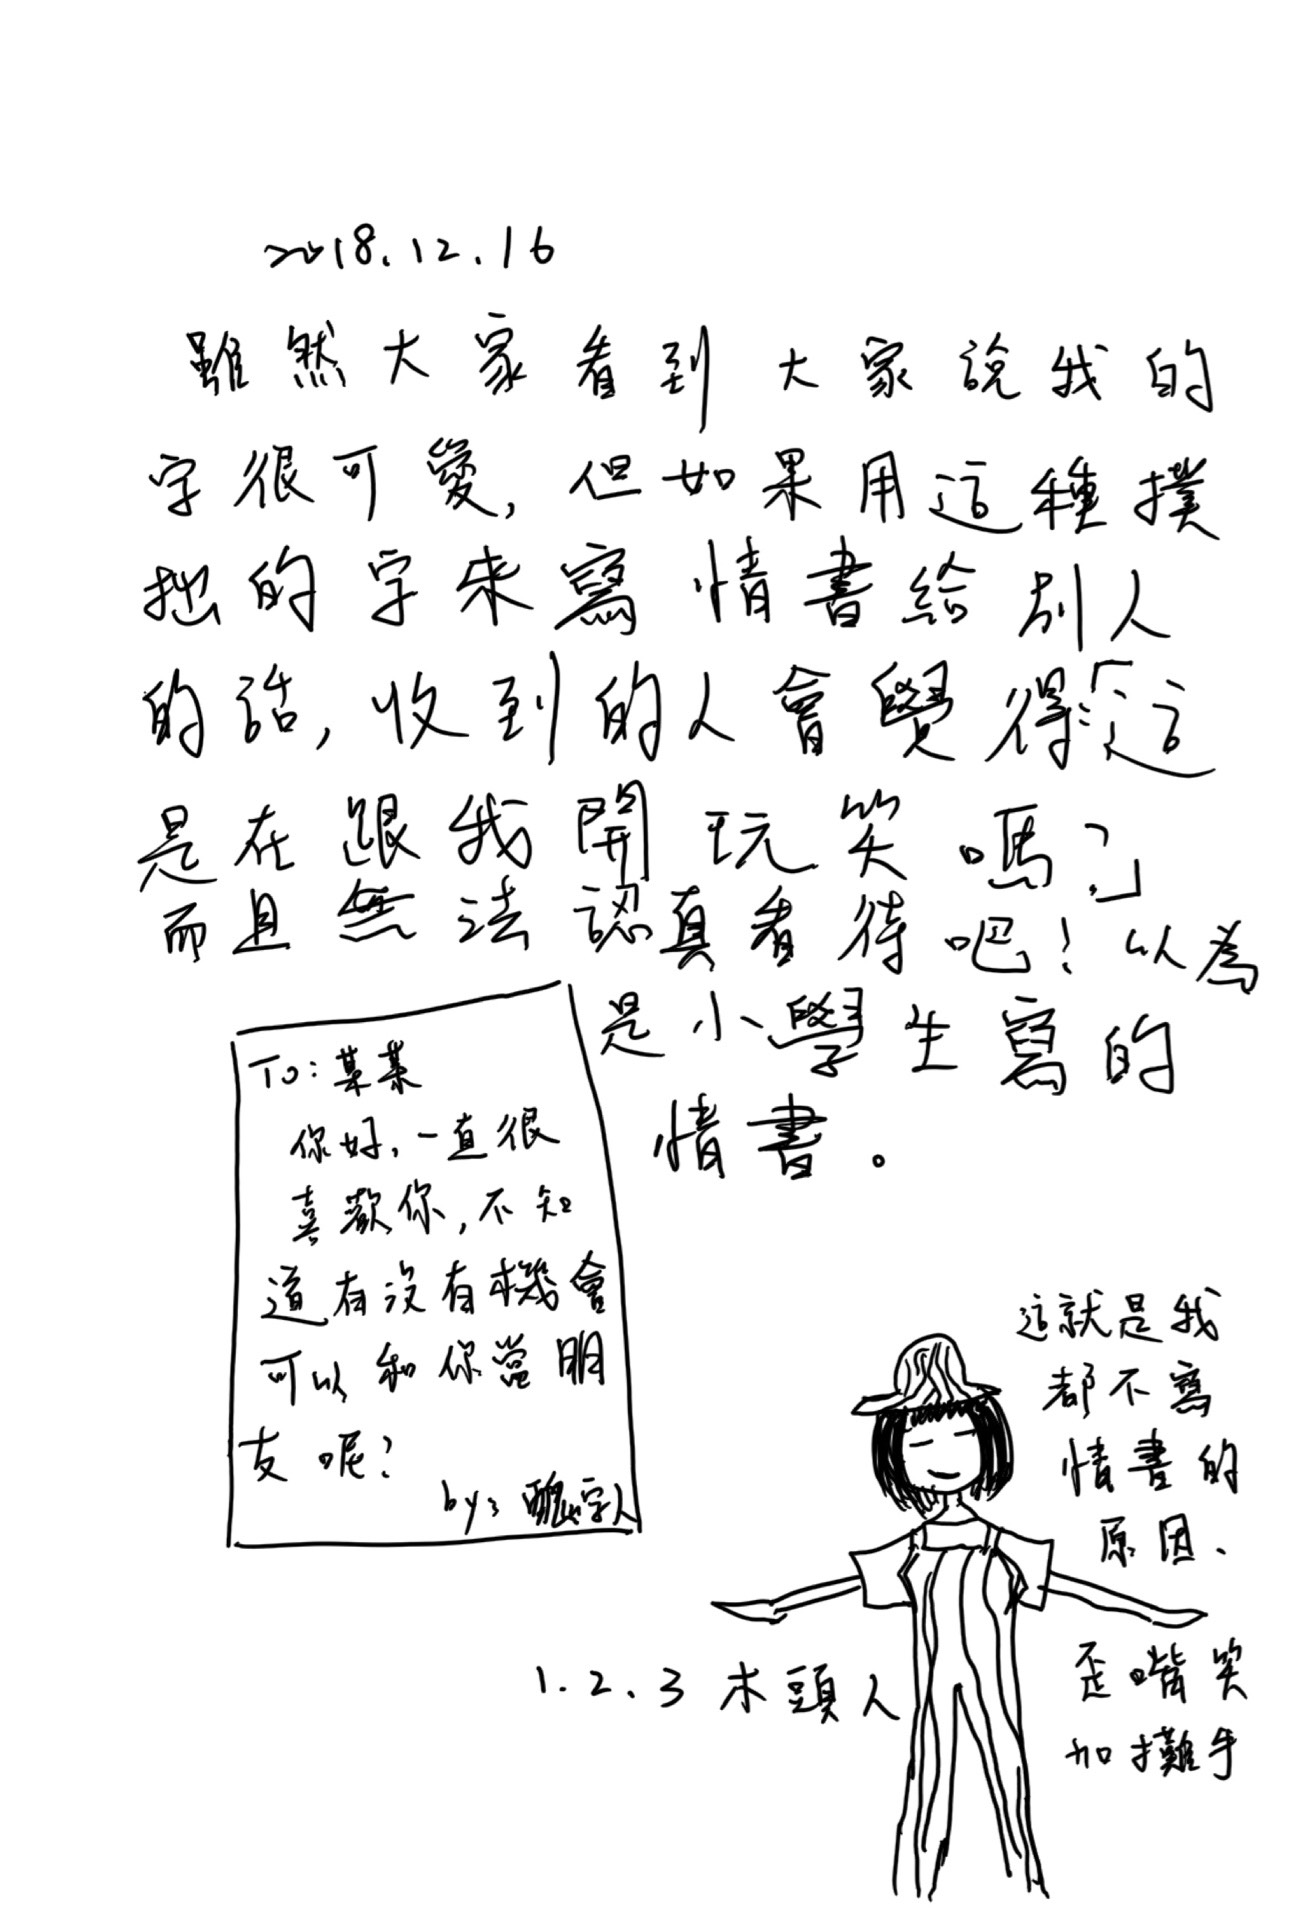 2018.12.16
雖然大家看到大家說我的
字很可愛,但如果用這種撲
拙的字來寫情書給別人
的話,收到的人會覺得:「這
是在跟我開玩笑嗎?」
而且無法認真看待吧!以為
是小學生寫的
情書。
To:某某
你好,一直很
喜歡你,不知
道有沒有機會
可以和你當朋
友呢?
by:醜字人
這就是我
都不寫
情書的
原因、
1.2.3木頭人
歪嘴笑
加攤手